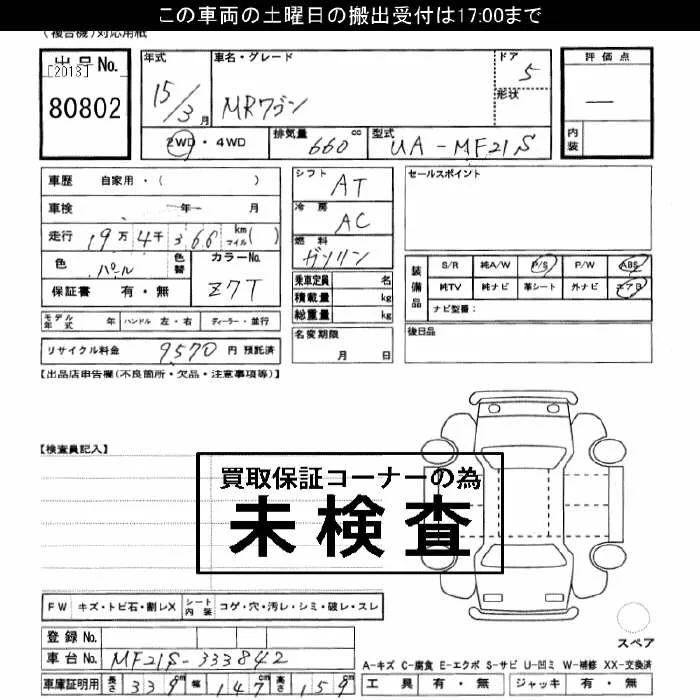 この車両の土曜日の搬出受付は17:00まで
(複合機)対応用紙
出品No.
[2013]
80802
年式
15/3月
車名・グレード
MRワゴン
ドア
5
形状
評価点
—
内装
2WD・4WD
排気量 660 cc
型式 UA-MF21S
車歴 自家用・( )
車検 年 月
走行 19万4千366 km マイル( )
色 パール
色替
カラーNo. Z7T
保証書 有・無
シフト AT
冷房 AC
燃料 ガソリン
乗車定員 名
積載量 kg
総重量 kg
セールスポイント
装備品
S/R 純A/W P/S P/W ABS
純TV 純ナビ 革シート 外ナビ エアB
ナビ型番:
モデル年式 年 ハンドル 左・右 ディーラー・並行
名変期限
月 日
後日品
リサイクル料金 9570 円 預託済
【出品店申告欄(不良箇所・欠品・注意事項等)】
【検査員記入】
買取保証コーナーの為
未検査
FW キズ・トビ石・割レX シート内装 コゲ・穴・汚レ・シミ・破レ・スレ
スペア
登録No.
車台No. MF21S-333842
A-キズ C-腐食 E-エクボ S-サビ U-凹ミ W-補修 XX-交換済
車庫証明用 長さ 339cm 幅 147cm 高さ 159cm
工具 有・無 ジャッキ 有・無